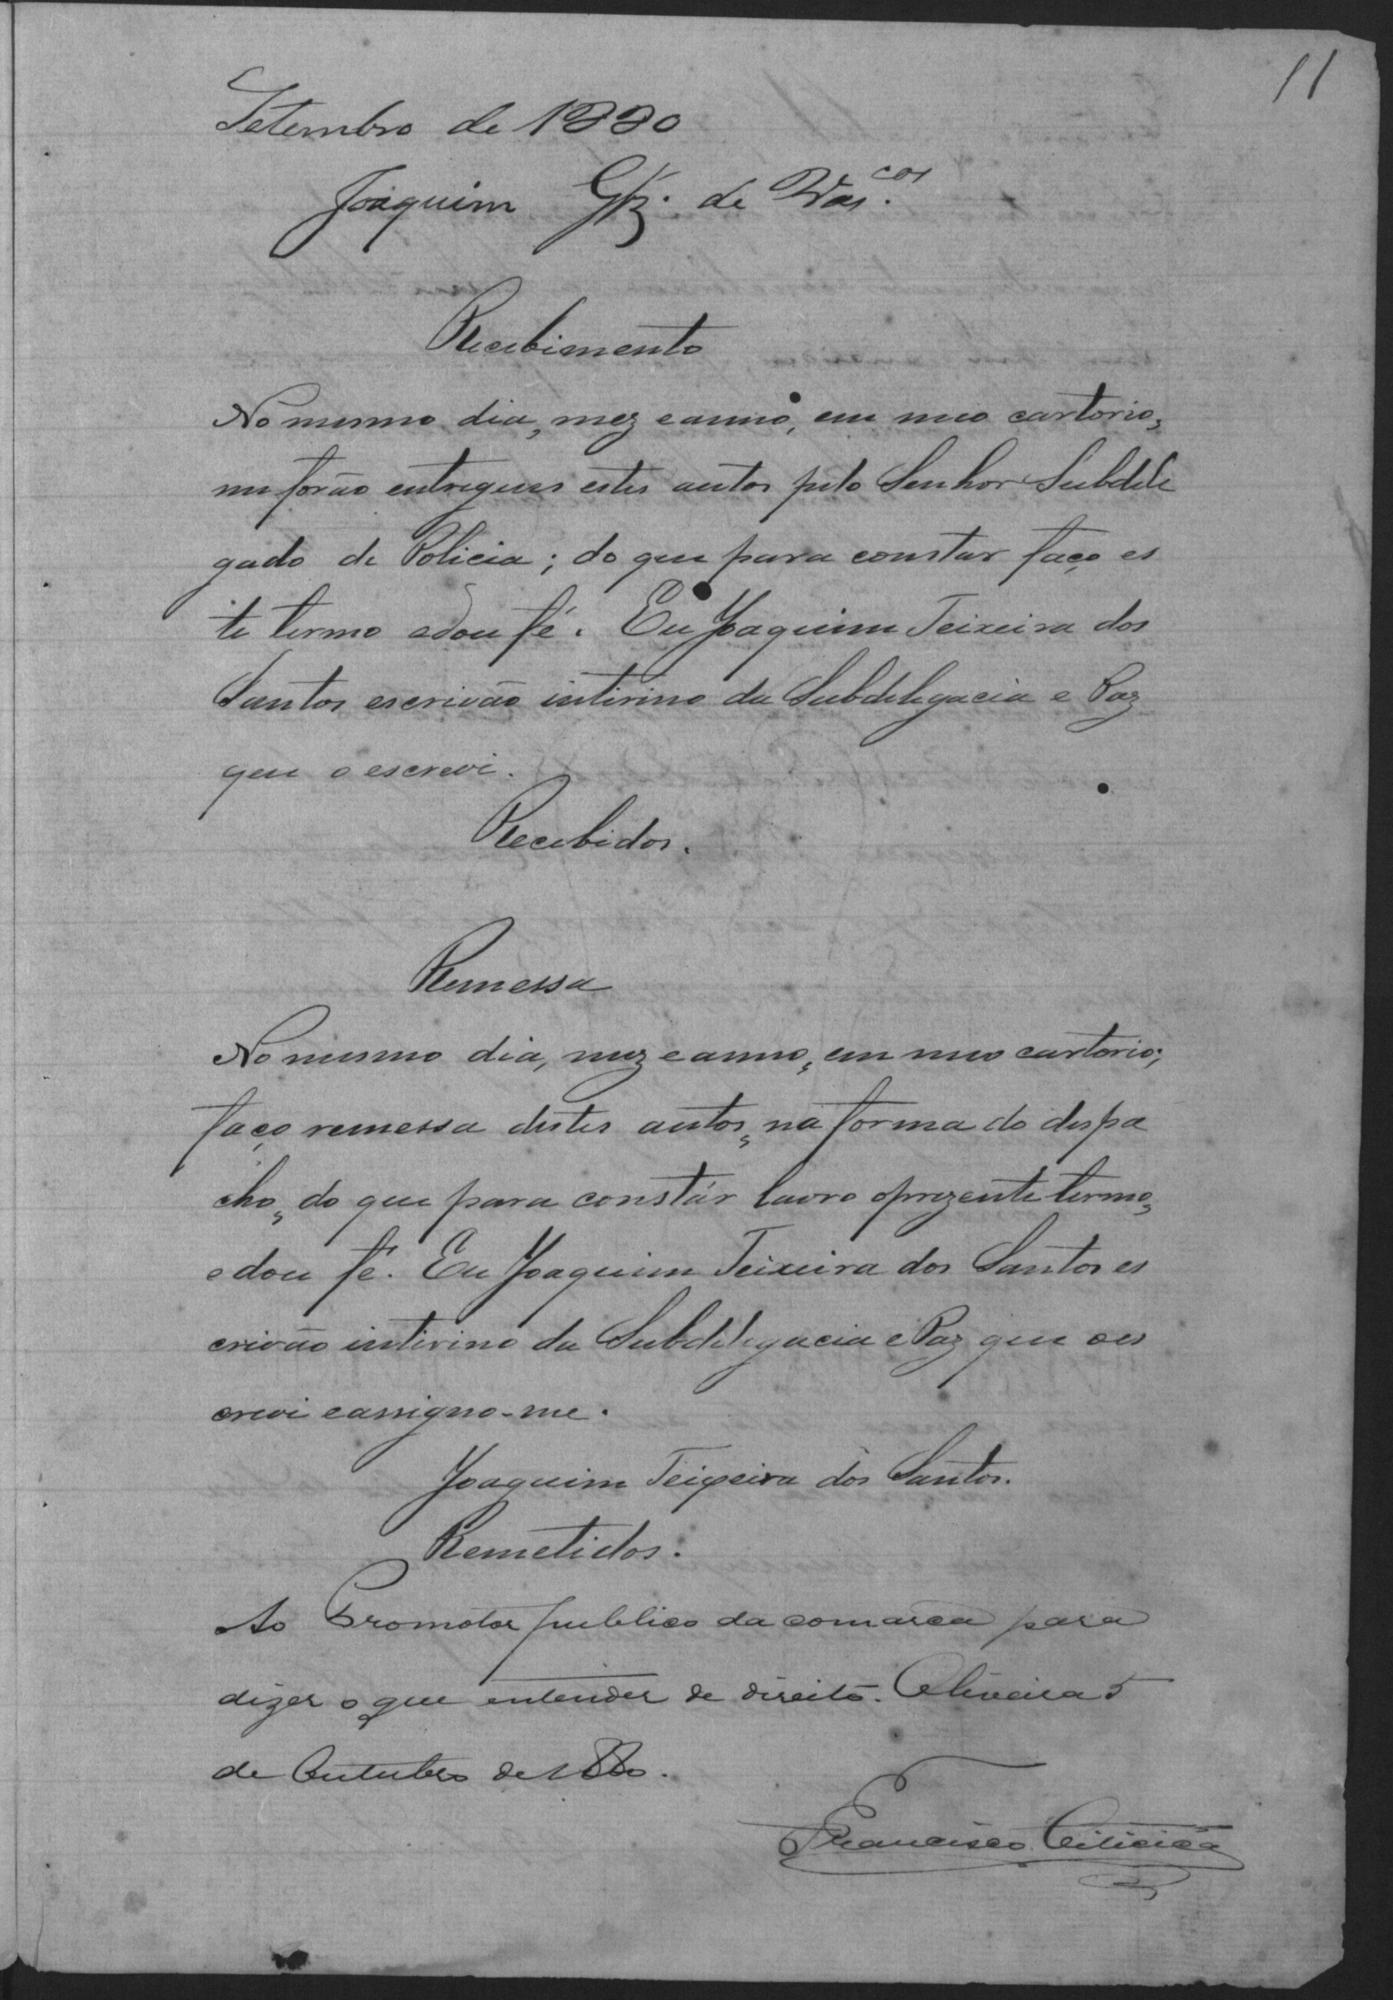 11
Setembro de 1880
Joaquim Glz. de Vas.cos
Recebimento
No mesmo dia, mez e anno, em meo cartorio,
me forão entregues estes autos pelo Senhor Subdele
gado de Policia; do que para constar faço es
te termo e dou fé. Eu Joaquim Teixeira dos
Santos escrivão interino da Subdelegacia e Paz
que o escrevi.
Recebidos.
Remessa
No mesmo dia, mez e anno, em meo cartorio;
faço remessa destes autos, na forma do despa
cho, do que para constár lavro o prezente termo,
e dou fé. Eu Joaquim Teixeira dos Santos es
crivão interino da Subdelegacia e Paz que o es
crevi e assigno-me.
Joaquim Teixeira dos Santos.
Remetidos.
Ao Promotor publico da comarca para
dizer o que entender de direito. Oliveira 5
de Outubro de 1880.
Francisco